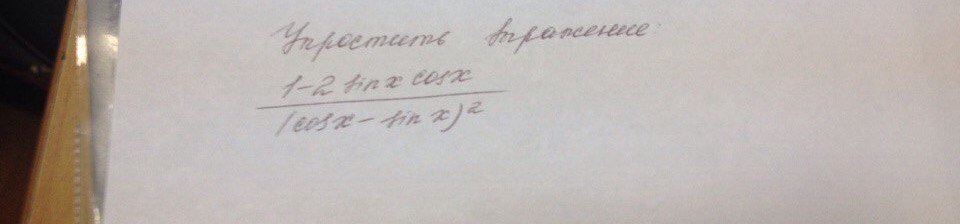 Упростить выражение
1-2 sin x cos x
(cos x - sin x)²